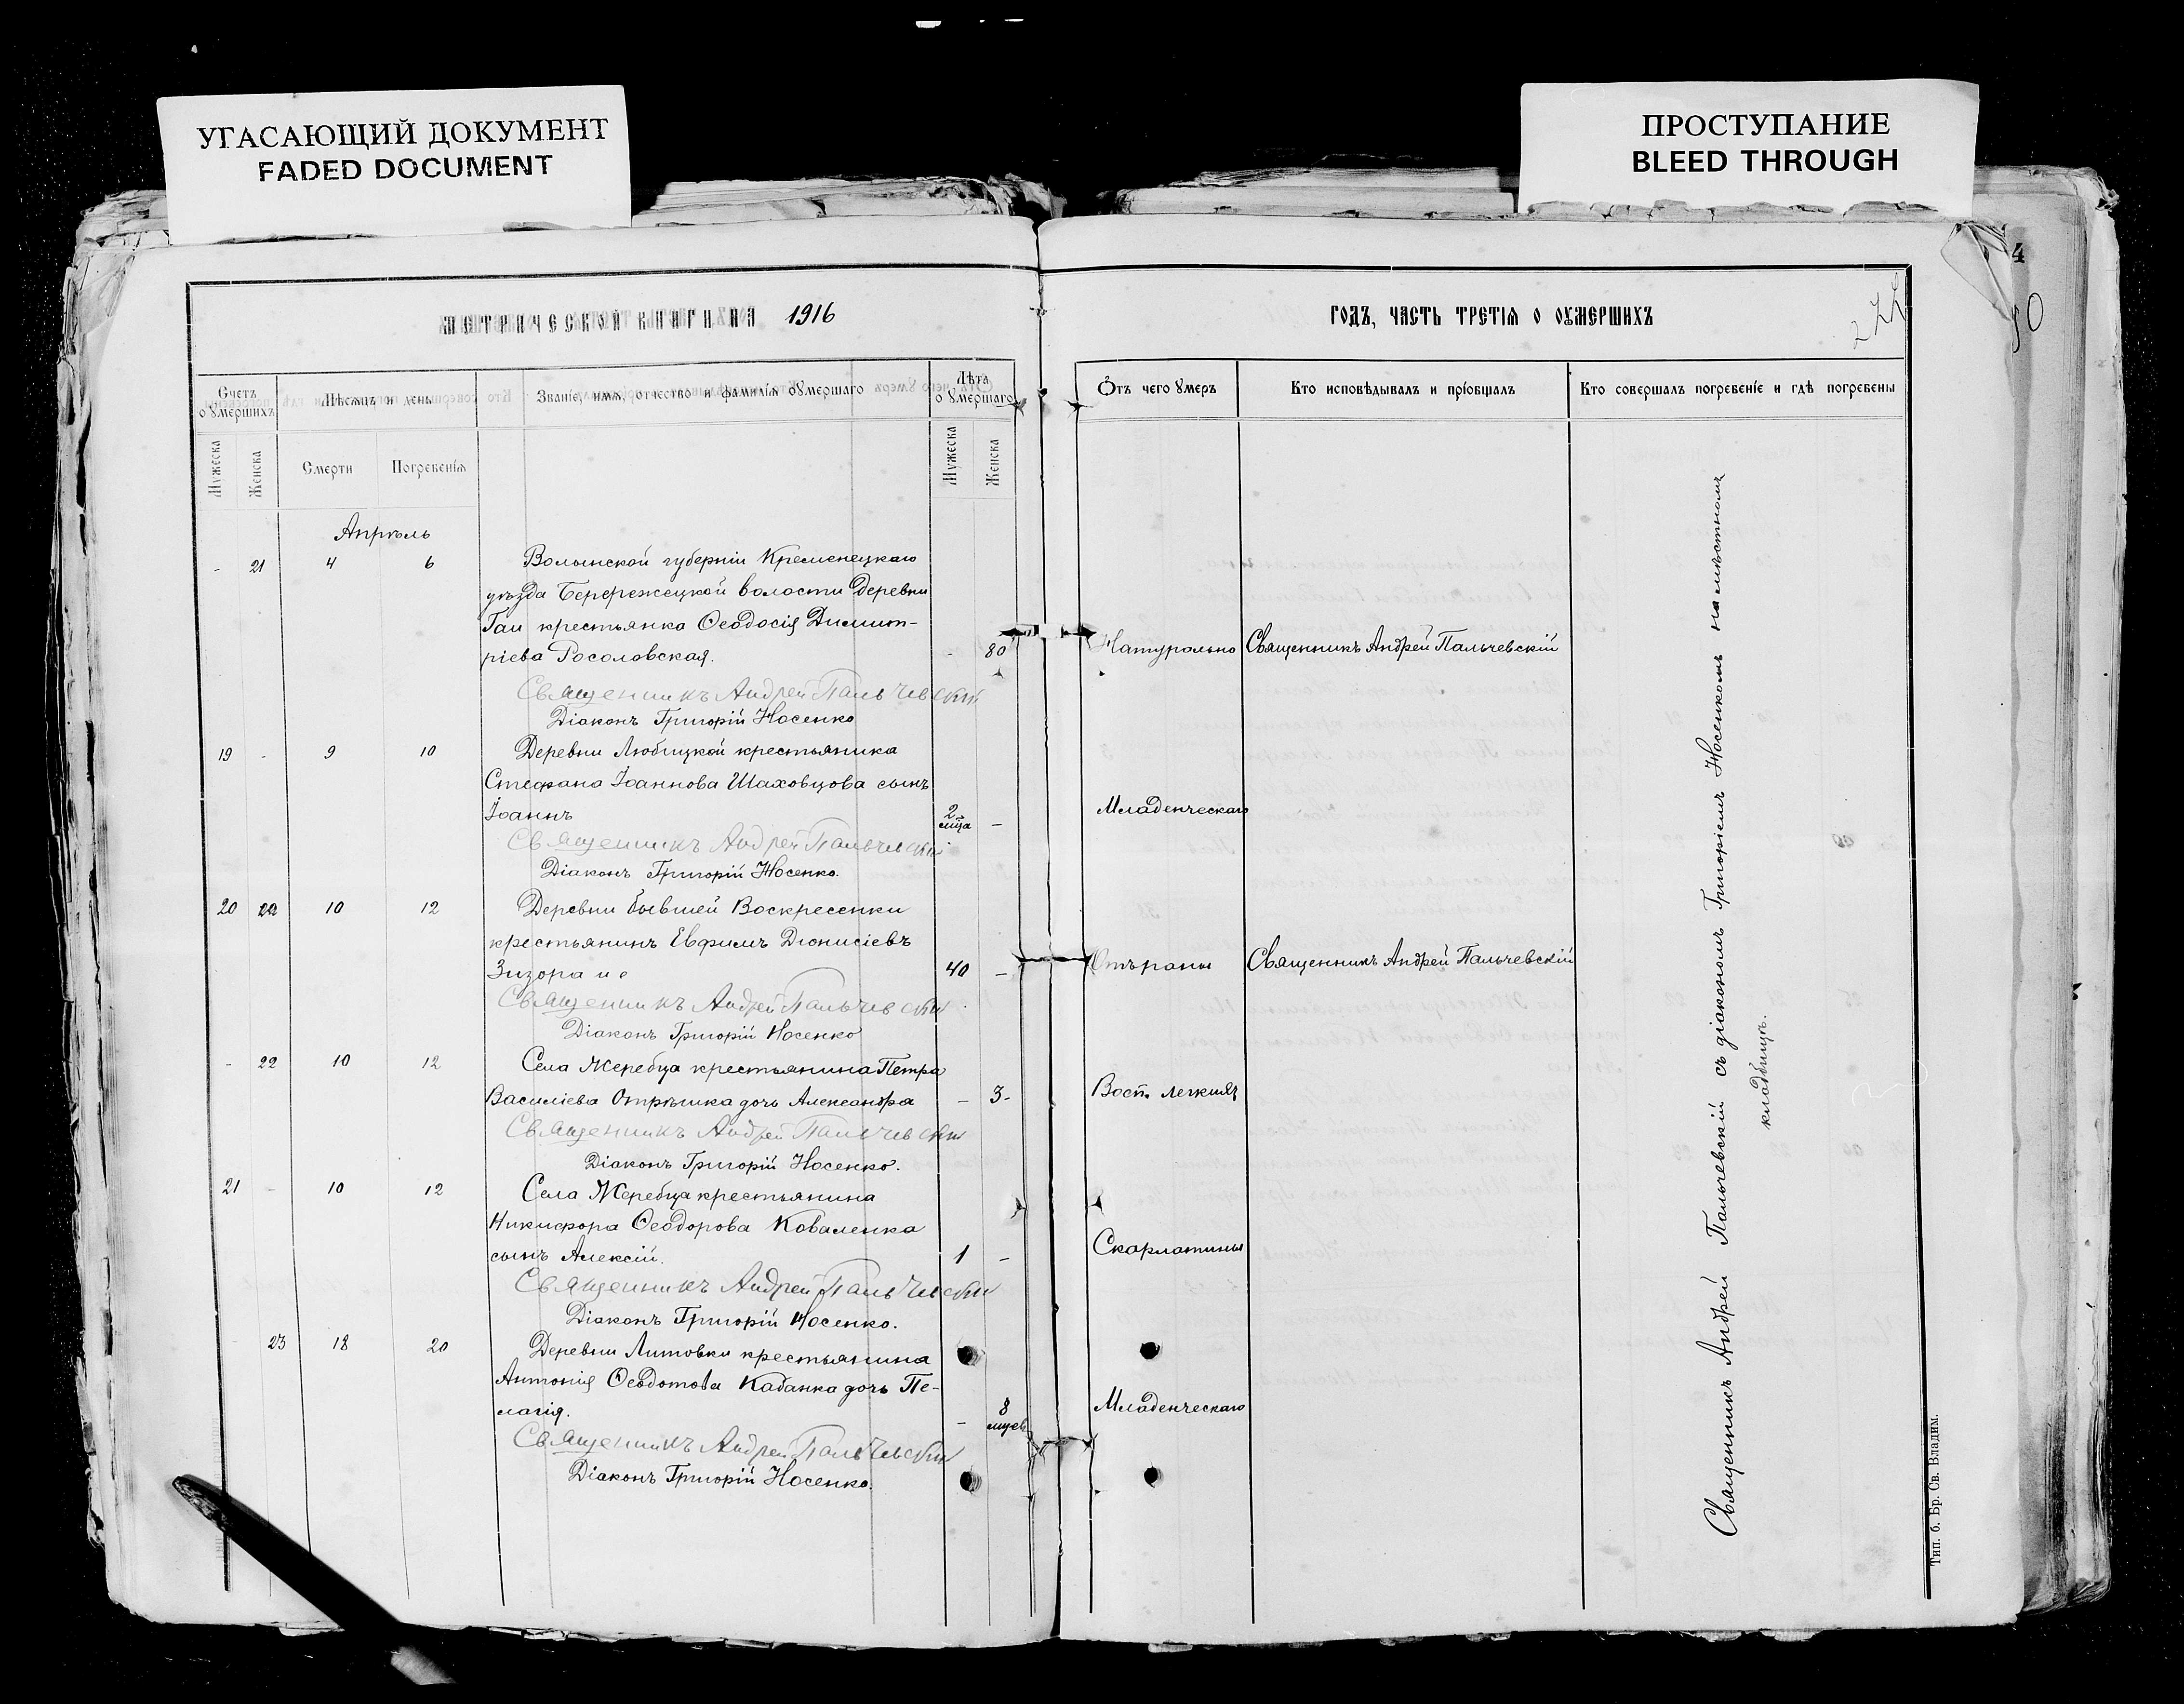 УГАСАЮЩИЙ ДОКУМЕНТ
FADED DOCUMENT
ПРОСТУПАНИЕ
BLEED THROUGH
4
50
МЕТРИЧЕСКОЙ КНИГИ НА 1916
ГОДЪ, ЧАСТЬ ТРЕТІЯ О ОУМЕРШИХЪ
Счетъ оумершихъ
Мѣсяцъ и день
Званіе, имя, отчество и фамилія оумершаго
Лѣта оумершаго
Отъ чего умеръ
Кто исповѣдывалъ и пріобщалъ
Кто совершалъ погребеніе и гдѣ погребены
Мужеска Женска Смерти Погребенія Мужеска Женска
Апрѣль
- 21 4 6 Волынской губерніи Кременецкаго
уѣзда Бережецкой волости деревни
Гаи крестьянка Ѳеодосія Димит-
ріева Росоловская. - 80 Натурально Священникъ Андрей Пальчевскій
Священникъ Андрей Пальчевскій
Діаконъ Григорій Носенко
19 - 9 10 Деревни Любицкой крестьянина
Стефана Іоаннова Шаховцова сынъ
Іоаннъ 2 мца - Младенческаго
Священникъ Андрей Пальчевскій
Діаконъ Григорій Носенко.
20 22 10 12 Деревни бывшей Воскресенки
крестьянинъ Евфимъ Діонисіевъ
Зизора 40 - Отъ раны Священникъ Андрей Пальчевскій
Священникъ Андрей Пальчевскій
Діаконъ Григорій Носенко
- 22 10 12 Села Жеребца крестьянина Петра
Василіева Отрѣшка дочь Александра - 3- Восп. легкихъ
Священникъ Андрей Пальчевскій
Діаконъ Григорій Носенко.
21 - 10 12 Села Жеребца крестьянина
Никифора Ѳеодорова Коваленка
сынъ Алексій. 1 - Скарлатины
Священникъ Андрей Пальчевскій
Діаконъ Григорій Носенко.
23 18 20 Деревни Литовки крестьянина
Антонія Ѳеодотова Кабанка дочь Пе-
лагія. - 8 мцев Младенческаго
Священникъ Андрей Пальчевскій
Діаконъ Григорій Носенко.
Священникъ Андрей Пальчевскій съ діакономъ Григоріемъ Носенкомъ на мѣстномъ
кладбищѣ.
Тип. б. Бр. Св. Владим.